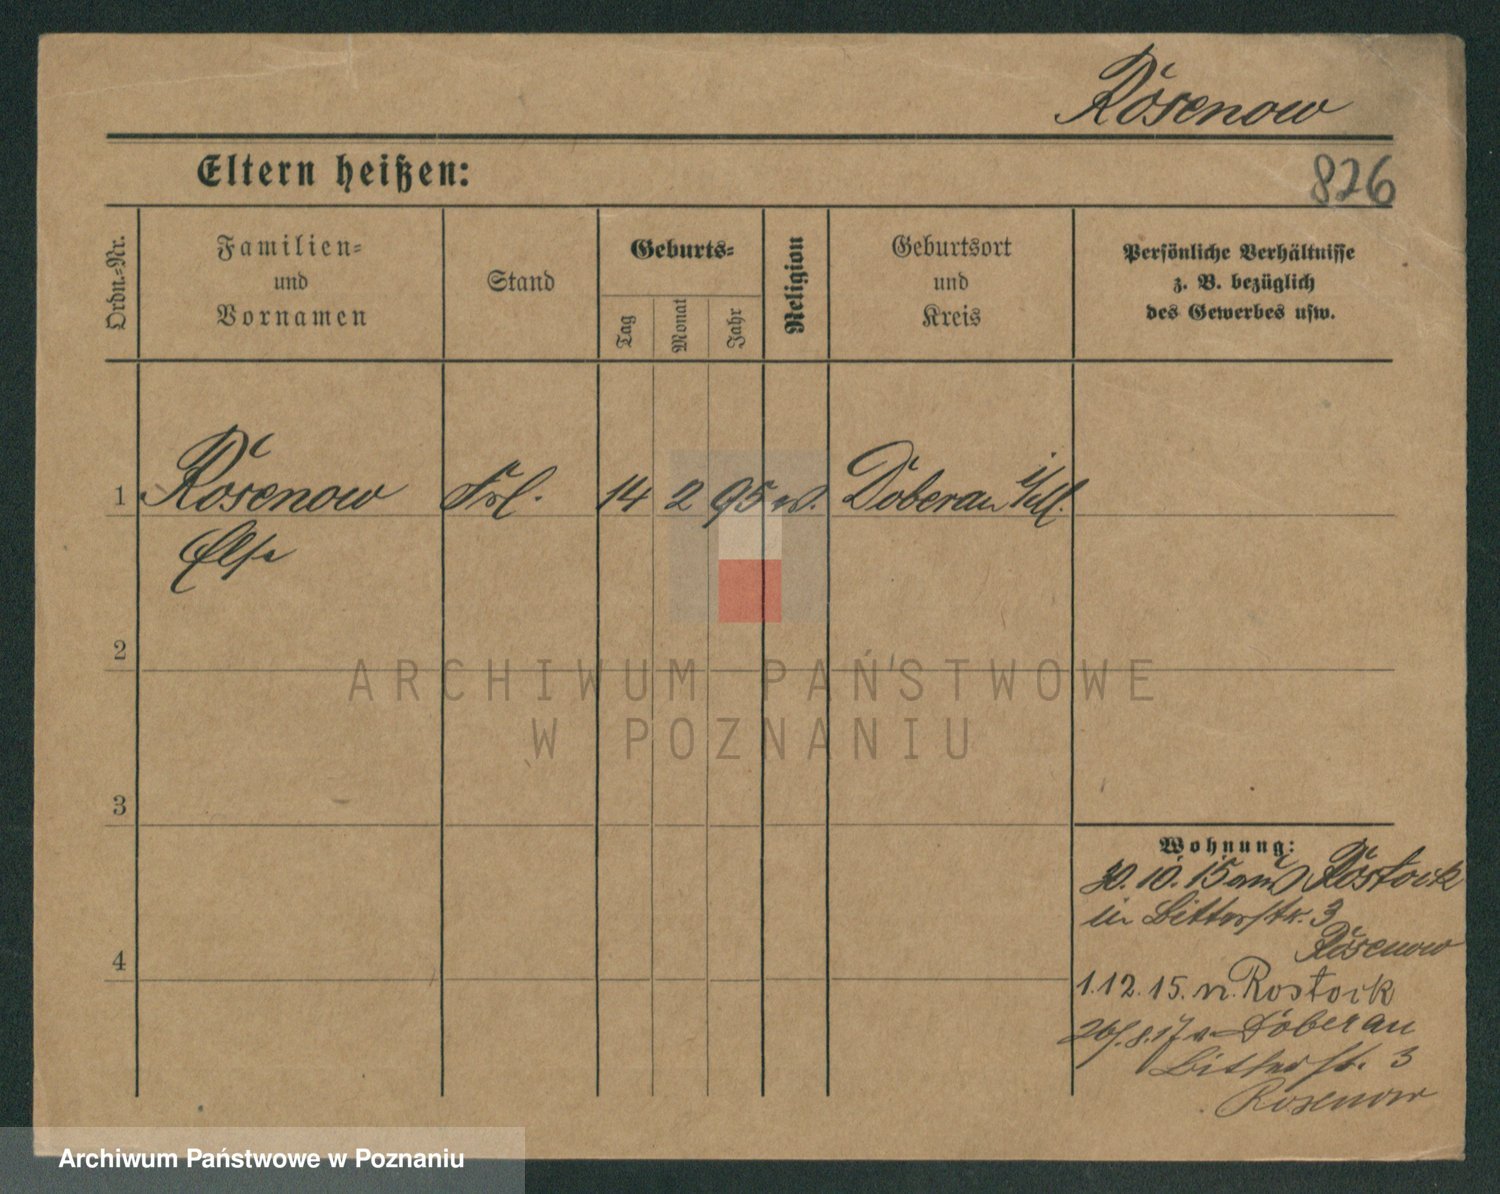 Rosenow
Eltern heißen:
826
Ordn.-Nr.
Familien-
und
Vornamen
Stand
Geburts-
Tag
Monat
Jahr
Religion
Geburtsort
und
Kreis
Persönliche Verhältnisse
z. B. bezüglich
des Gewerbes usw.
1
Rosenow
Frl.
14
2
95
Doberan i/M.
Else
2
3
4
ARCHIWUM PAŃSTWOWE
W POZNANIU
Wohnung:
30. 10. 15 aus Rostock
in Bitterstr. 3
Rosenow
1. 12. 15. n. Rostock
26/. 8. 17 v. Doberan
Bitterst. 3
Rosenow
Archiwum Państwowe w Poznaniu